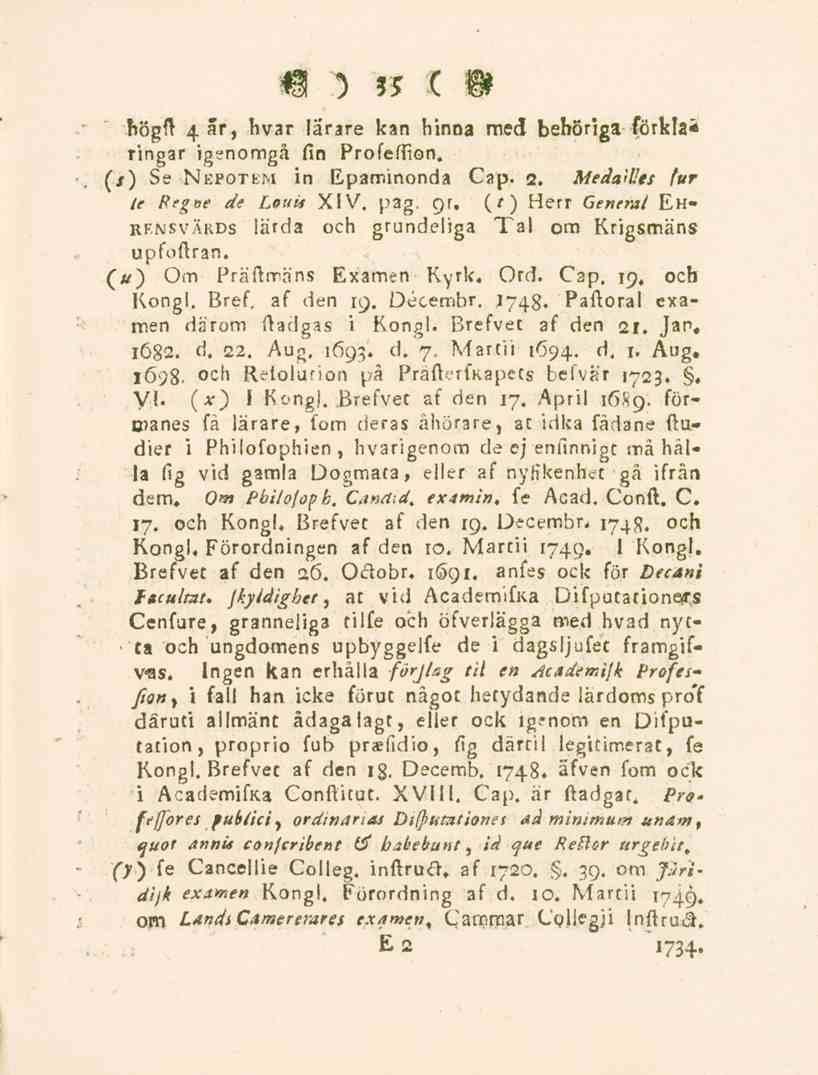 ) 35 (
högſt 4 år, hvar lärare kan hinna med behöriga förkla-
ringar igenomgå ſin Profeſſion.
(s) Se NEPOTEM in Epaminonda Cap. 2. Medailles ſur
le Regne de Louis XIV. pag. 91. (t) Herr General EH-
RENSVÄRDS lärda och grundeliga Tal om Krigsmäns
upfoſtran.
(u) Om Präſtmäns Examen Kyrk. Ord. Cap. 19. och
Kongl. Bref. af den 19. Decembr. 1748. Paſtoral exa-
men därom ſtadgas i Kongl. Brefvet af den 21. Jan.
1682. d. 22. Aug. 1693. d. 7. Martii 1694. d. 1. Aug.
1698. och Reſolution på Präſterſkapets beſvär 1723. §.
VI. (x) I Kongl. Brefvet af den 17. April 1689. för-
manes ſå lärare, ſom deras åhörare, at idka ſådane ſtu-
dier i Philoſophien, hvarigenom de ej enſinnigt må hål-
la ſig vid gamla Dogmata, eller af nyſikenhet gå ifrån
dem. Om Philoſoph. Candid. examin. ſe Acad. Conſt. C.
17. och Kongl. Brefvet af den 19. Decembr. 1748. och
Kongl. Förordningen af den 10. Martii 1749. I Kongl.
Brefvet af den 26. Octobr. 1691. anſes ock för Decani
Facultat. ſkyldighet, at vid Academiſka Diſputationers
Cenſure, granneliga tilſe och öfverlägga med hvad nyt-
ta och ungdomens upbyggelſe de i dagsljuſet framgif-
vas. Ingen kan erhålla förſlag til en Academiſk Profes-
ſion, i fall han icke förut något betydande lärdoms prof
däruti allmänt ådagalagt, eller ock igenom en Diſpu-
tation, proprio ſub præſidio, ſig därtil legitimerat, ſe
Kongl. Brefvet af den 18. Decemb. 1748. äfven ſom ock
i Academiſka Conſtitut. XVIII. Cap. är ſtadgat. Pro-
feſſores publici, ordinarias Diſputationes ad minimum unam,
quot annis conſcribent & habebunt, id que Rector urgebit.
(y) ſe Cancellie Colleg. inſtruct. af 1720. §. 39. om Juri-
diſk examen Kongl. Förordning af d. 10. Martii 1749.
om Lands Camererares examen, Cammar Collegji Inſtruct.
E 2 1734.